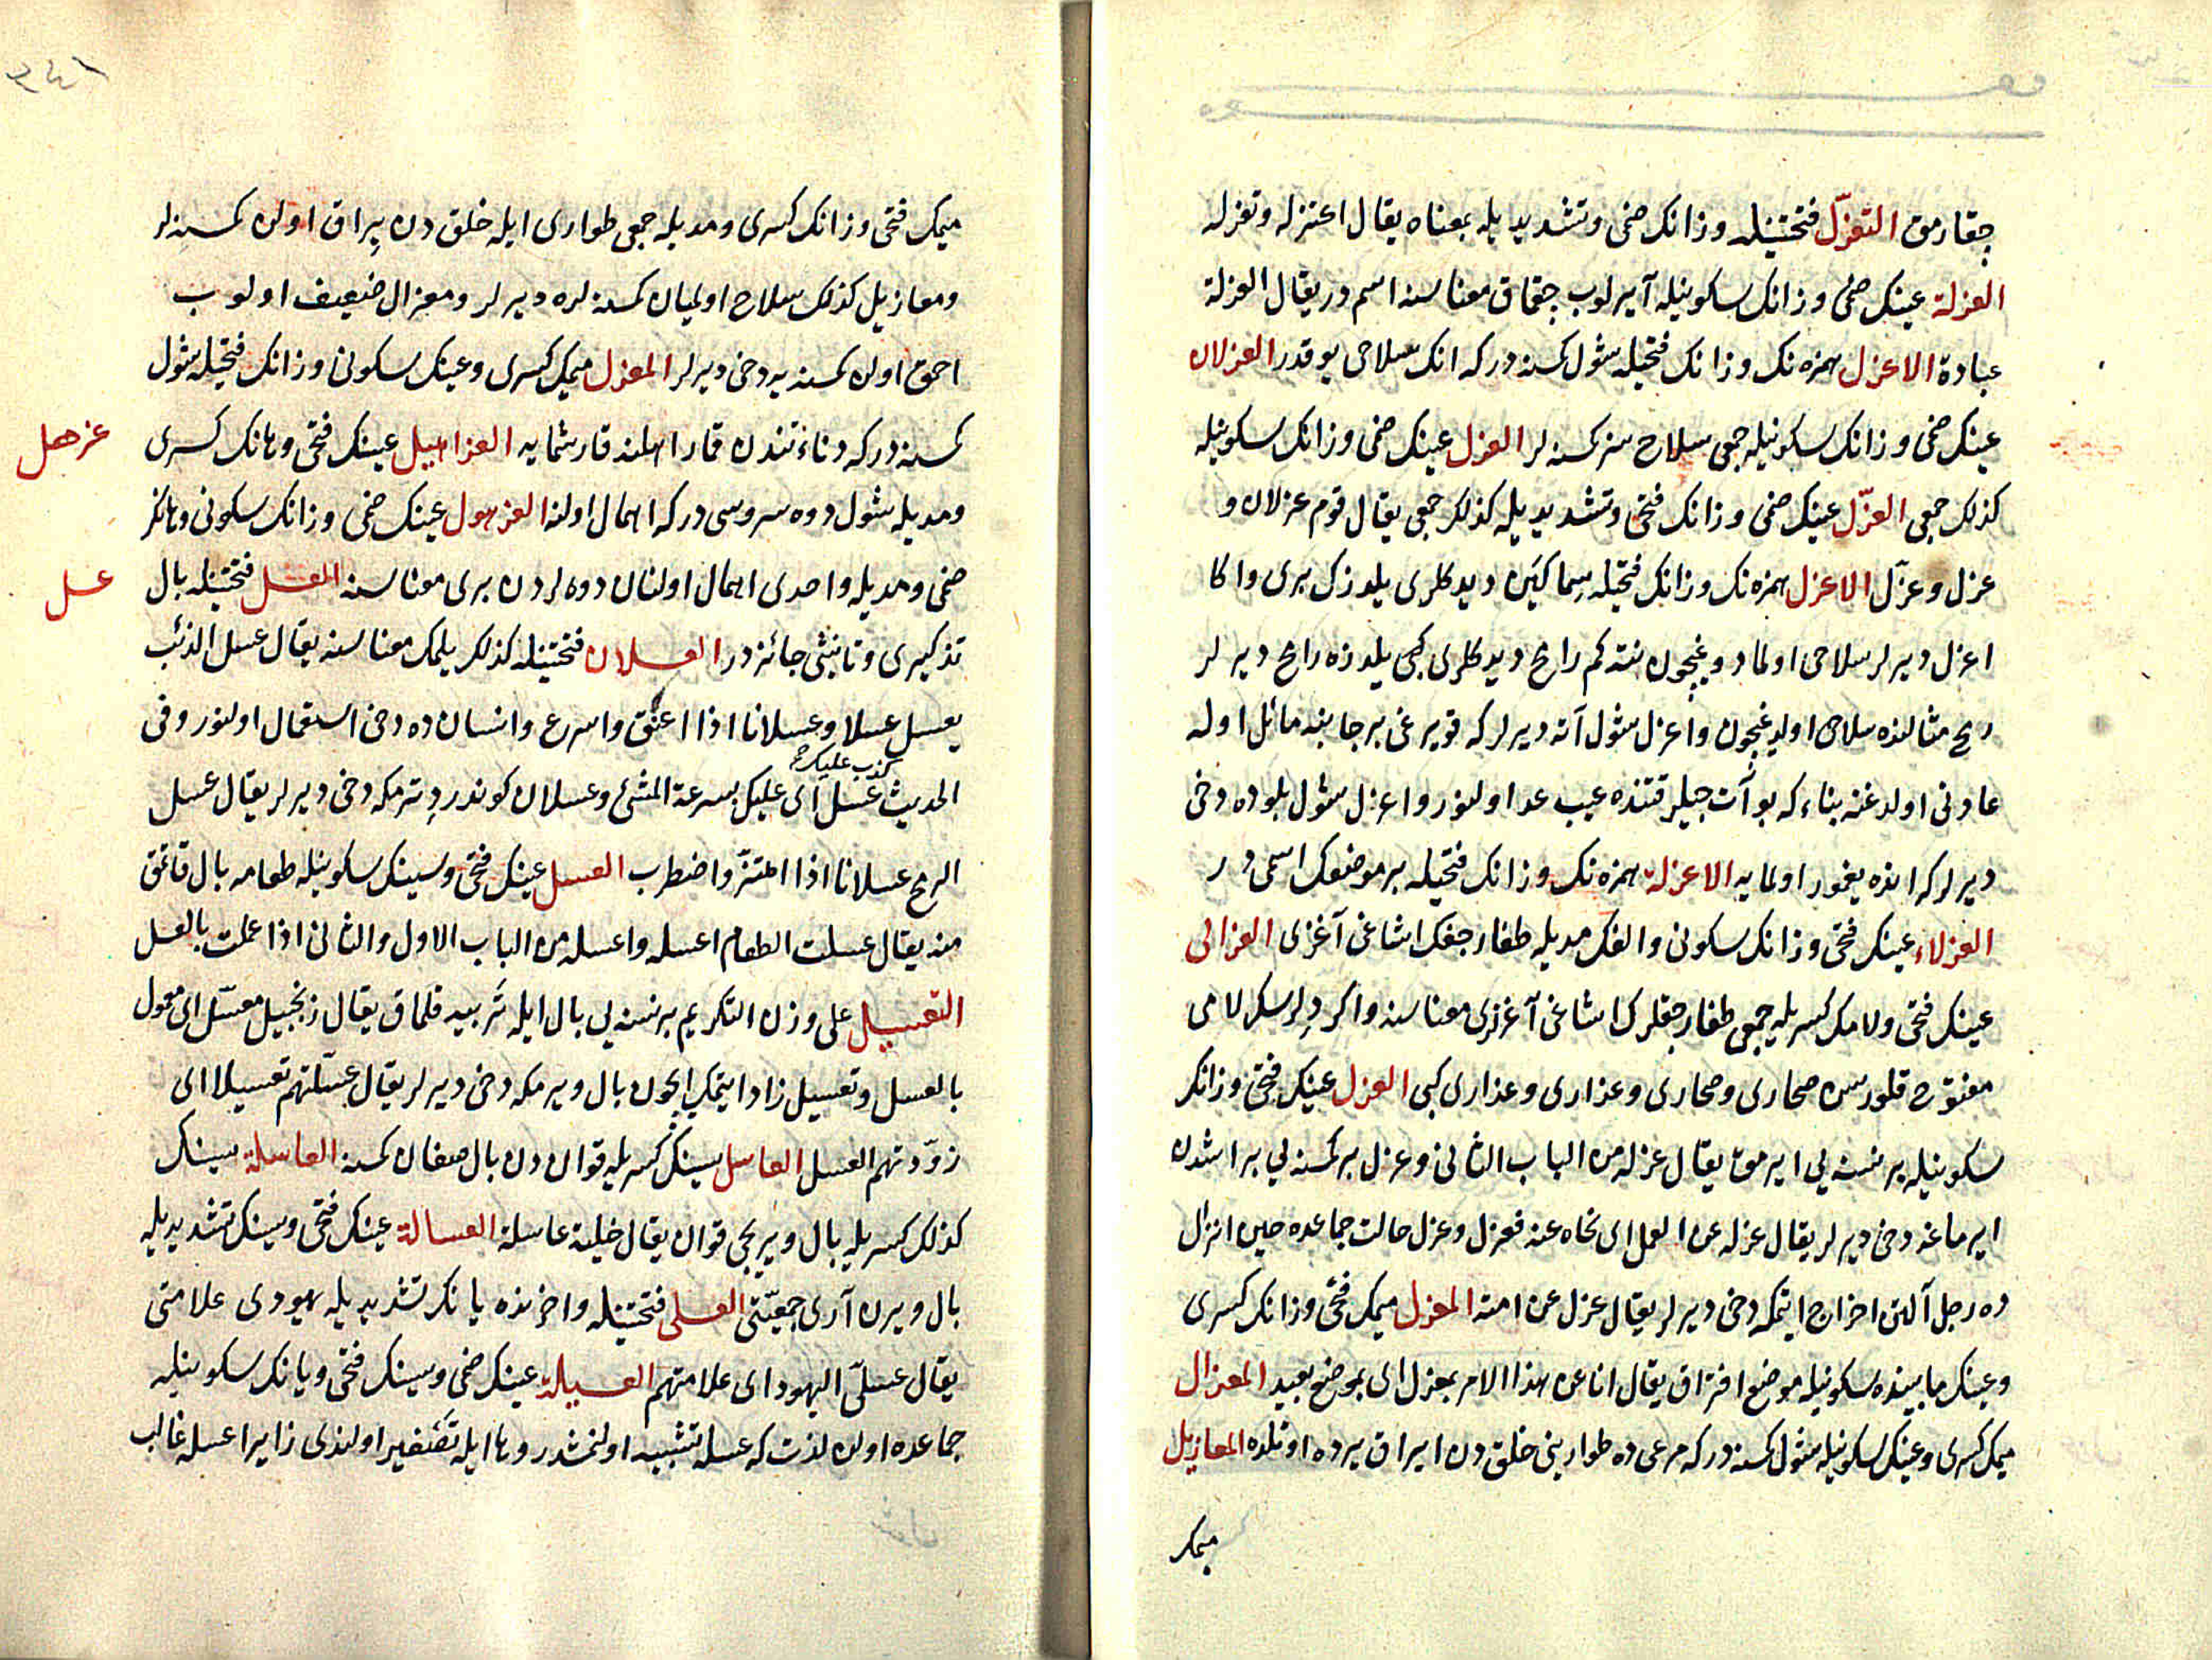 جقارمق التعزّل فتحتينله وزانك ضمى وتشديديله بمعناه يقال اعتزله وتعزله
العزلة عينك ضمى وزانك سكونيله آيرلوب جقماق معناسنه اسم در يقال العزلة
عبادة الاعزل همزه نك وزانك فتحيله شول كمسنه در كه انك سلاحى يوقدر العزلان
عينك ضمى وزانك سكونيله جمعى سلاح سز كمسنه لر العزل عينك ضمى وزانك سكونيله
كذلك جمعى العزّل عينك ضمى وزانك فتحى وتشديديله كذلك جمعى يقال قوم عزلان و
عزل وعزّل الاعزل همزه نك وزانك فتحيله سماكين ديدكلرى يلدزك برى واكا
اعزل ديرلر سلاحى اولمادوغيچون نته كم رامح ديدكلرى كبى يلدزه رامح ديرلر
رمح مثالنده سلاحى اولدوغيچون واعزل شول آته ديرلر كه قويرغى بر جانبه مائل اوله
عادتى اولدغنه بناء كه بو آت جيلر قتنده عيب عد اولنور واعزل شول بلوده دخى
ديرلر كه انده يغمور اولمايه الاعزلة همزه نك وزانك فتحيله بر موضعك اسمى در
العزلاء عينك فتحى وزانك سكونى والفك مديله طغارجغك اشاغى آغزى العزالى
عينك فتحى ولامك كسريله جمعى طغارجقلرك اشاغى آغزلرى معناسنه واكر ديلرسك لامى
مفتوح قلورسن صحارى وصحارى وعذارى وعذارى كبى العزل عينك فتحى وزانك
سكونيله بر نسنه يى ايرمق يقال عزله من الباب الثانى وعزل بر كمسنه يى بر اشدن
ايرماغه دخى ديرلر يقال عزله عن العمل اى نحاه عنه فعزل وعزل حالت جماعده حين انزال
ده رجل آلتن اخراج ايتمكه دخى ديرلر يقال عزل عن امته المعزل ميمك فتحى وزانك كسرى
وعينك مابينده سكونيله موضع افتراق يقال انا عن هذا الامر بمعزل اى بموضع بعيد المعزال
ميمك كسرى وعينك سكونيله شول كمسنه در كه مرعى ده طوارينى خلق دن ايراق يرده اوتلده المعازيل
ميمك
ميمك فتحى وزانك كسرى ومديله جمعى طوارى ايله خلق دن يراق اولن كمسنه لر
ومعازيل كذلك سلاح اولميان كمسنه لره ديرلر ومعزال ضعيف اولوب
احمق اولن كمسنه يه دخى ديرلر المعزل ميمك كسرى وعينك سكونى وزانك فتحيله شول
كمسنه در كه دناءتندن قمار اهلنه قارشمايه العزاهيل عينك فتحى وهانك كسرى
عزهل
ومديله شول دوه سروسى در كه اهمال اولنه العزهول عينك ضمى وزانك سكونى وهانك
ضمى ومديله واحدى اهمال اولنان دوه لردن برى معناسنه العسل فتحتينله بال
عسل
تذكيرى وتأنيثى جائزدر العسلان فتحتينله كذلك يلمك معناسنه يقال عسل الذئب
يعسل عسلا وعسلانا اذا اعنق واسرع وانسان ده دخى استعمال اولنور وفى
كذب عليك
الحديث عسل اى عليك بسرعة المشى وعسلان كوندر دترمكه دخى ديرلر يقال عسل
الرمح عسلانا اذا اهتزّ واضطرب العسل عينك فتحى وسينك سكونيله طعامه بال قاتمق
منه يقال عسلت الطعام اعسله واعسله من الباب الاول والثانى اذا عملت بالعسل
التعسيل على وزن التكريم بر نسنه يى بال ايله تربيه قلماق يقال زنجبيل معسّل اى معمول
بالعسل وتعسيل زاد ايتمك ايچون بال ويرمكه دخى ديرلر يقال عسّلتهم تعسيلا اى
زوّدتهم العسل العاسل سينك كسريله قوان دن بال صغان كمسنه العاسلة سينك
كذلك كسريله بال ويريجى قوان يقال خلية عاسلة العسالة عينك فتحى وسينك تشديديله
بال ويرن آرى جمعيّتى العسلى فتحتينله واخرنده يانك تشديديله يهودى علامتى
يقال عسلىّ اليهود اى علامتهم العسيلة عينك ضمى وسينك فتحى ويانك سكونيله
جماعده اولن لذت كه عسله تشبيه اولنمشدر وها ايله تصغير اولندى زايرا عسله غالب